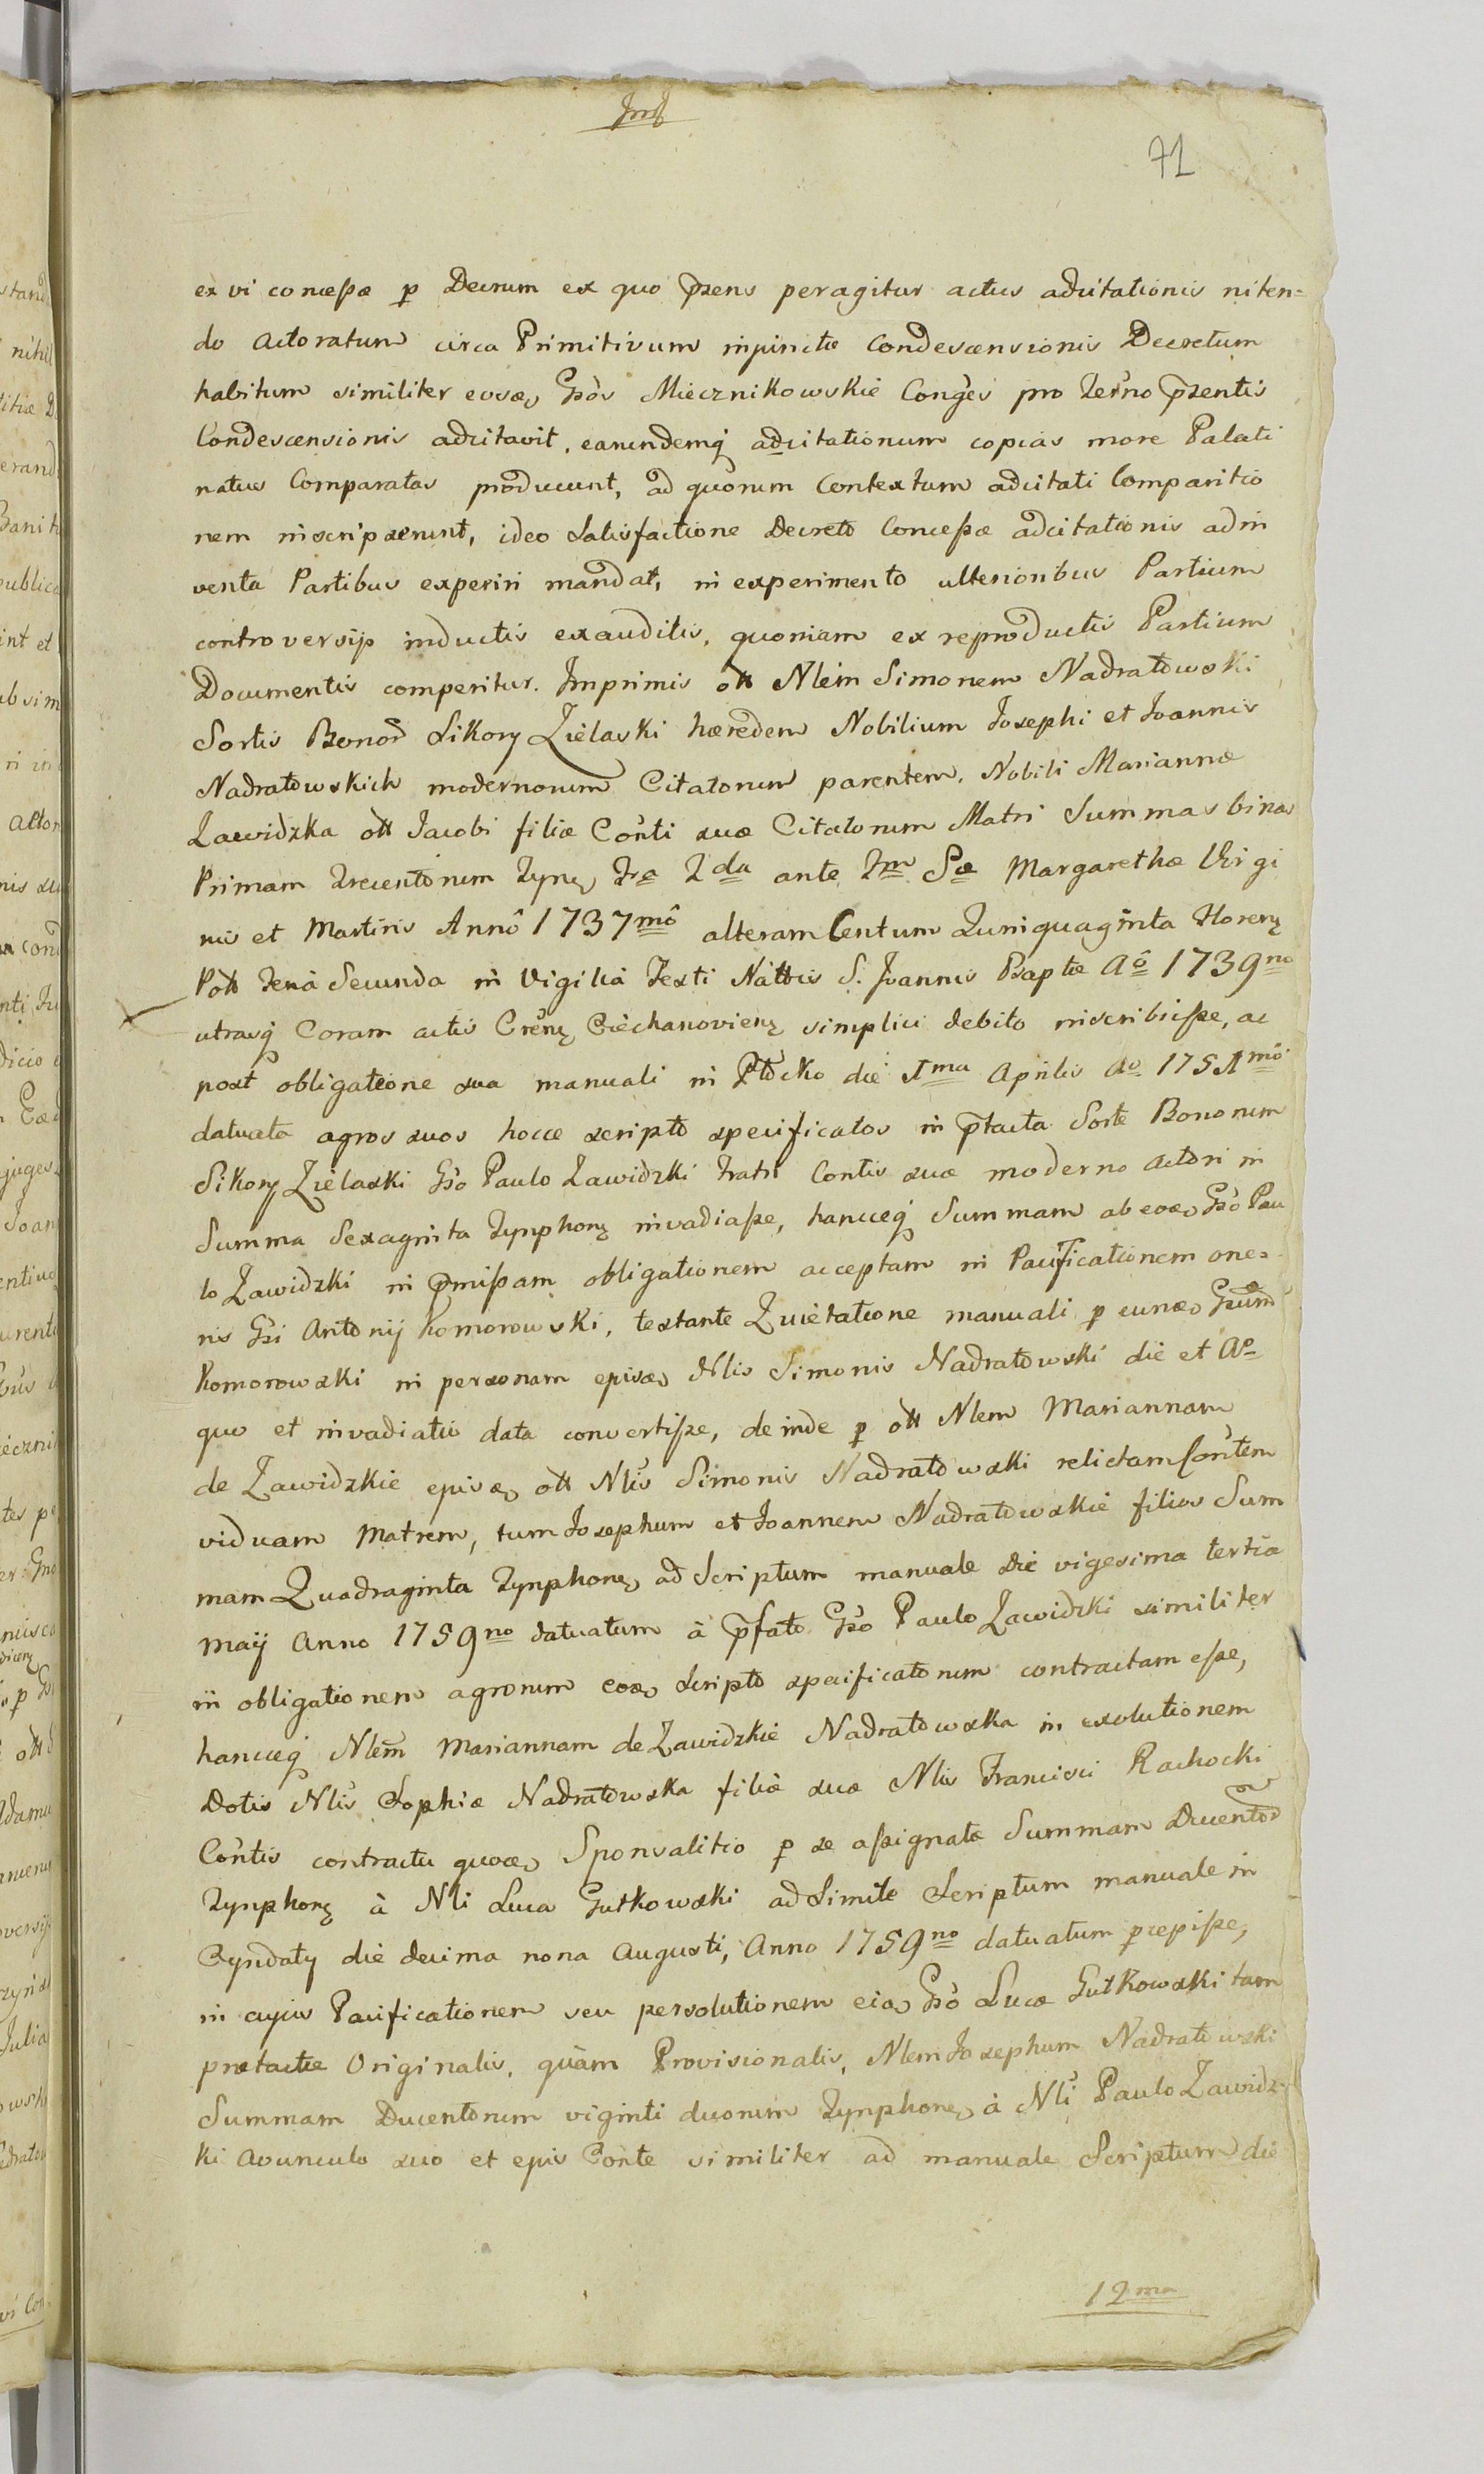 71
ex vi concessæ p Decrum ex quo przens peragitur actus adcitationis niten=
do Actoratum circa Primitivum injunctæ Condescensionis Decretum
habitum similiter eosdę Gsos Miecznikowskie Conges pro Terno przentis
Condescensionis adcitavit, earundemq adcitationum copias more Palati
natus Comparatas producunt, ad quorum Contextum adcitati Comparitio
nem inscripserunt, ideo Satisfactione Decreto Concessæ adcitationis adin
venta Partibus experiri mandat, in experimento ulterioribus Partium
controversijs inductis exauditis, quoniam ex reproductis Partium
Documentis comperitur. Imprimis ott Nlem Simonem Nadratowski
Sortis Bonor Sikory Zielaski hæredem Nobilium Josephi et Joannis
Nadratowskich modernorum Citatorum parentem, Nobili Mariannæ
Zawidzka ott Jacobi filiæ Conti suæ Citatorum Matri Summas binas
Primam Trecentorum Tynę Fra 2da ante Fm Sæ Margarethæ Virgi
nis et Martiris Anno 1737mo alteram Centum Quinquaginta Florenę
Pott Feria Secunda in Vigilia Festi Nattis S. Joannis Baptæ Ao 1739no
utrasq Coram actis Crenę Ciechanovienę simplici debito inscribisse, ac
post obligatione sua manuali in Płocko die 1ma Aprilis Ao 1751mo
datuata agros suos hocce scripto specificatos in ptacta Sorte Bonorum
Sikory Zielaski Gso Paulo Zawidzki Fratri Contis suæ moderno Actori in
Summa Sexaginta Tynphonę invadiasse, hancceq Summam ab eodę Gso Pau
lo Zawidzki in pmissam obligationem acceptam in Pacificationem one=
ris Gsi Antonij Komorowski, testante Quietatione manuali p eundę Gsum
Komorowski in personam ejusdę Nlis Simonis Nadratowski die et Ao
quo et invadiatio data convertisse, deinde p ott Nlem Mariannam
de Zawidzkie ejusdę ott Nlis Simonis Nadratowski relictam Contem
viduam Matrem, tum Josephum et Joannem Nadratowskie filios Sum
mam Quadraginta Tynphonę ad Scriptum manuale die vigesima tertia
Maij Anno 1759no datuatum à pfato Gso Paulo Zawidzki similiter
in obligationem agrorum eodę Scripto specificatorum contractam esse,
hancceq Nlem Mariannam de Zawidzkie Nadratowska in exolutionem
Dotis Nlis Sophiæ Nadratowska filiæ suæ Nlis Francisci Rachocki
Contis contractu quodę Sponsalitio p se assignatæ Summam Ducentor
Tynphonę à Nli Luca Gutkowski ad Simile Scriptum manuale in
Cyndaty die decima nona Augusti, Anno 1759no datuatum pcepisse,
in cujus Pacificationem seu persolutionem eidę Gso Lucæ Gutkowski tam
prætactæ Originalis, quàm Provisionalis, Nlem Josephum Nadratowski
Summam Ducentorum viginti duorum Tynphonę à Nli Paulo Zawidz=
ki Avunculo suo et ejus Conte similiter ad manuale Scriptum die
12ma